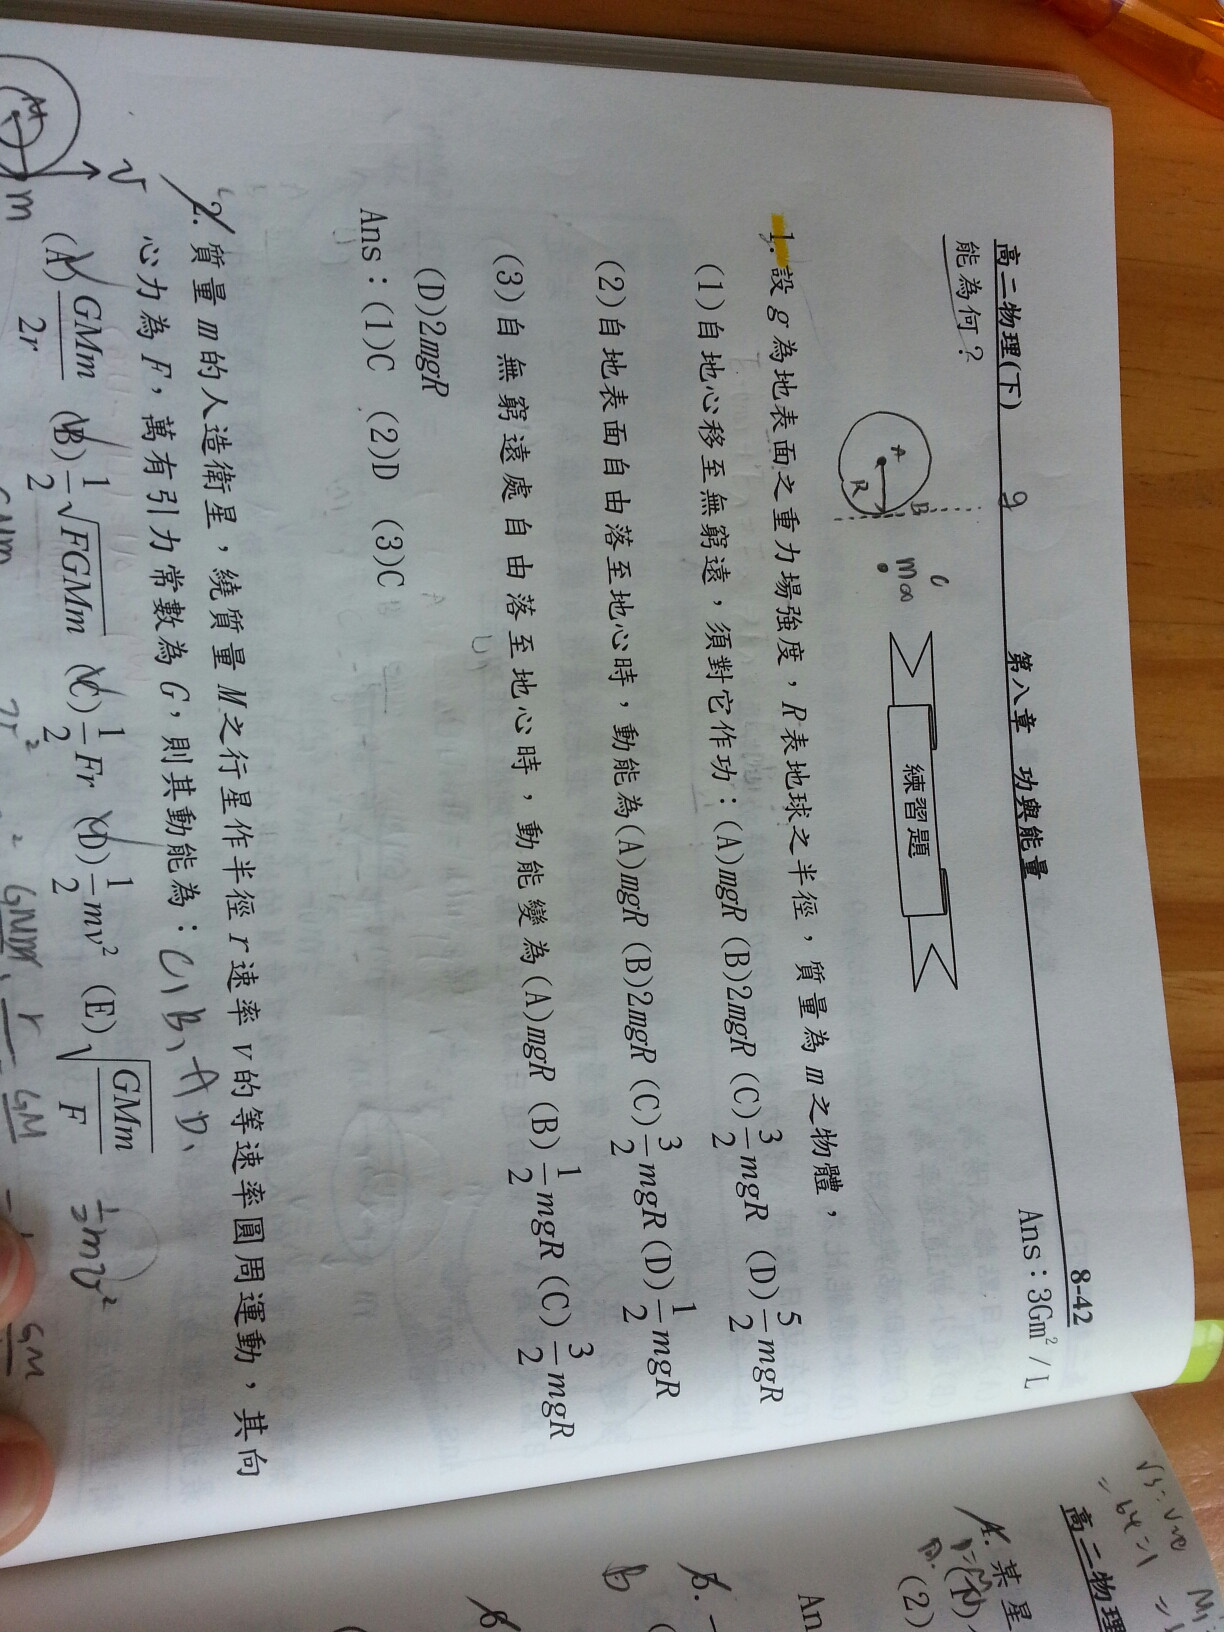 高二物理(下)
9
第八章 功與能量
8-42
能為何？
Ans：3Gm²/L
練習題
A
R
B
C
m∞
1. 設g為地表面之重力場強度，R表地球之半徑，質量為m之物體，
(1)自地心移至無窮遠，須對它作功：(A)mgR (B)2mgR (C)3/2mgR (D)5/2mgR
(2)自地表面自由落至地心時，動能為(A)mgR (B)2mgR (C)3/2mgR (D)1/2mgR
(3)自無窮遠處自由落至地心時，動能變為(A)mgR (B)1/2mgR (C)3/2mgR
(D)2mgR
Ans：(1)C (2)D (3)C
2. 質量m的人造衛星，繞質量M之行星作半徑r速率v的等速率圓周運動，其向
心力為F，萬有引力常數為G，則其動能為：C、B、A D、
(A)GMm/2r (B)1/2√FGMm (C)1/2Fr (D)1/2mv² (E)√GMm/F
1/2mv²
M
m
v
高二物理
4. 某星
(2)
An
B